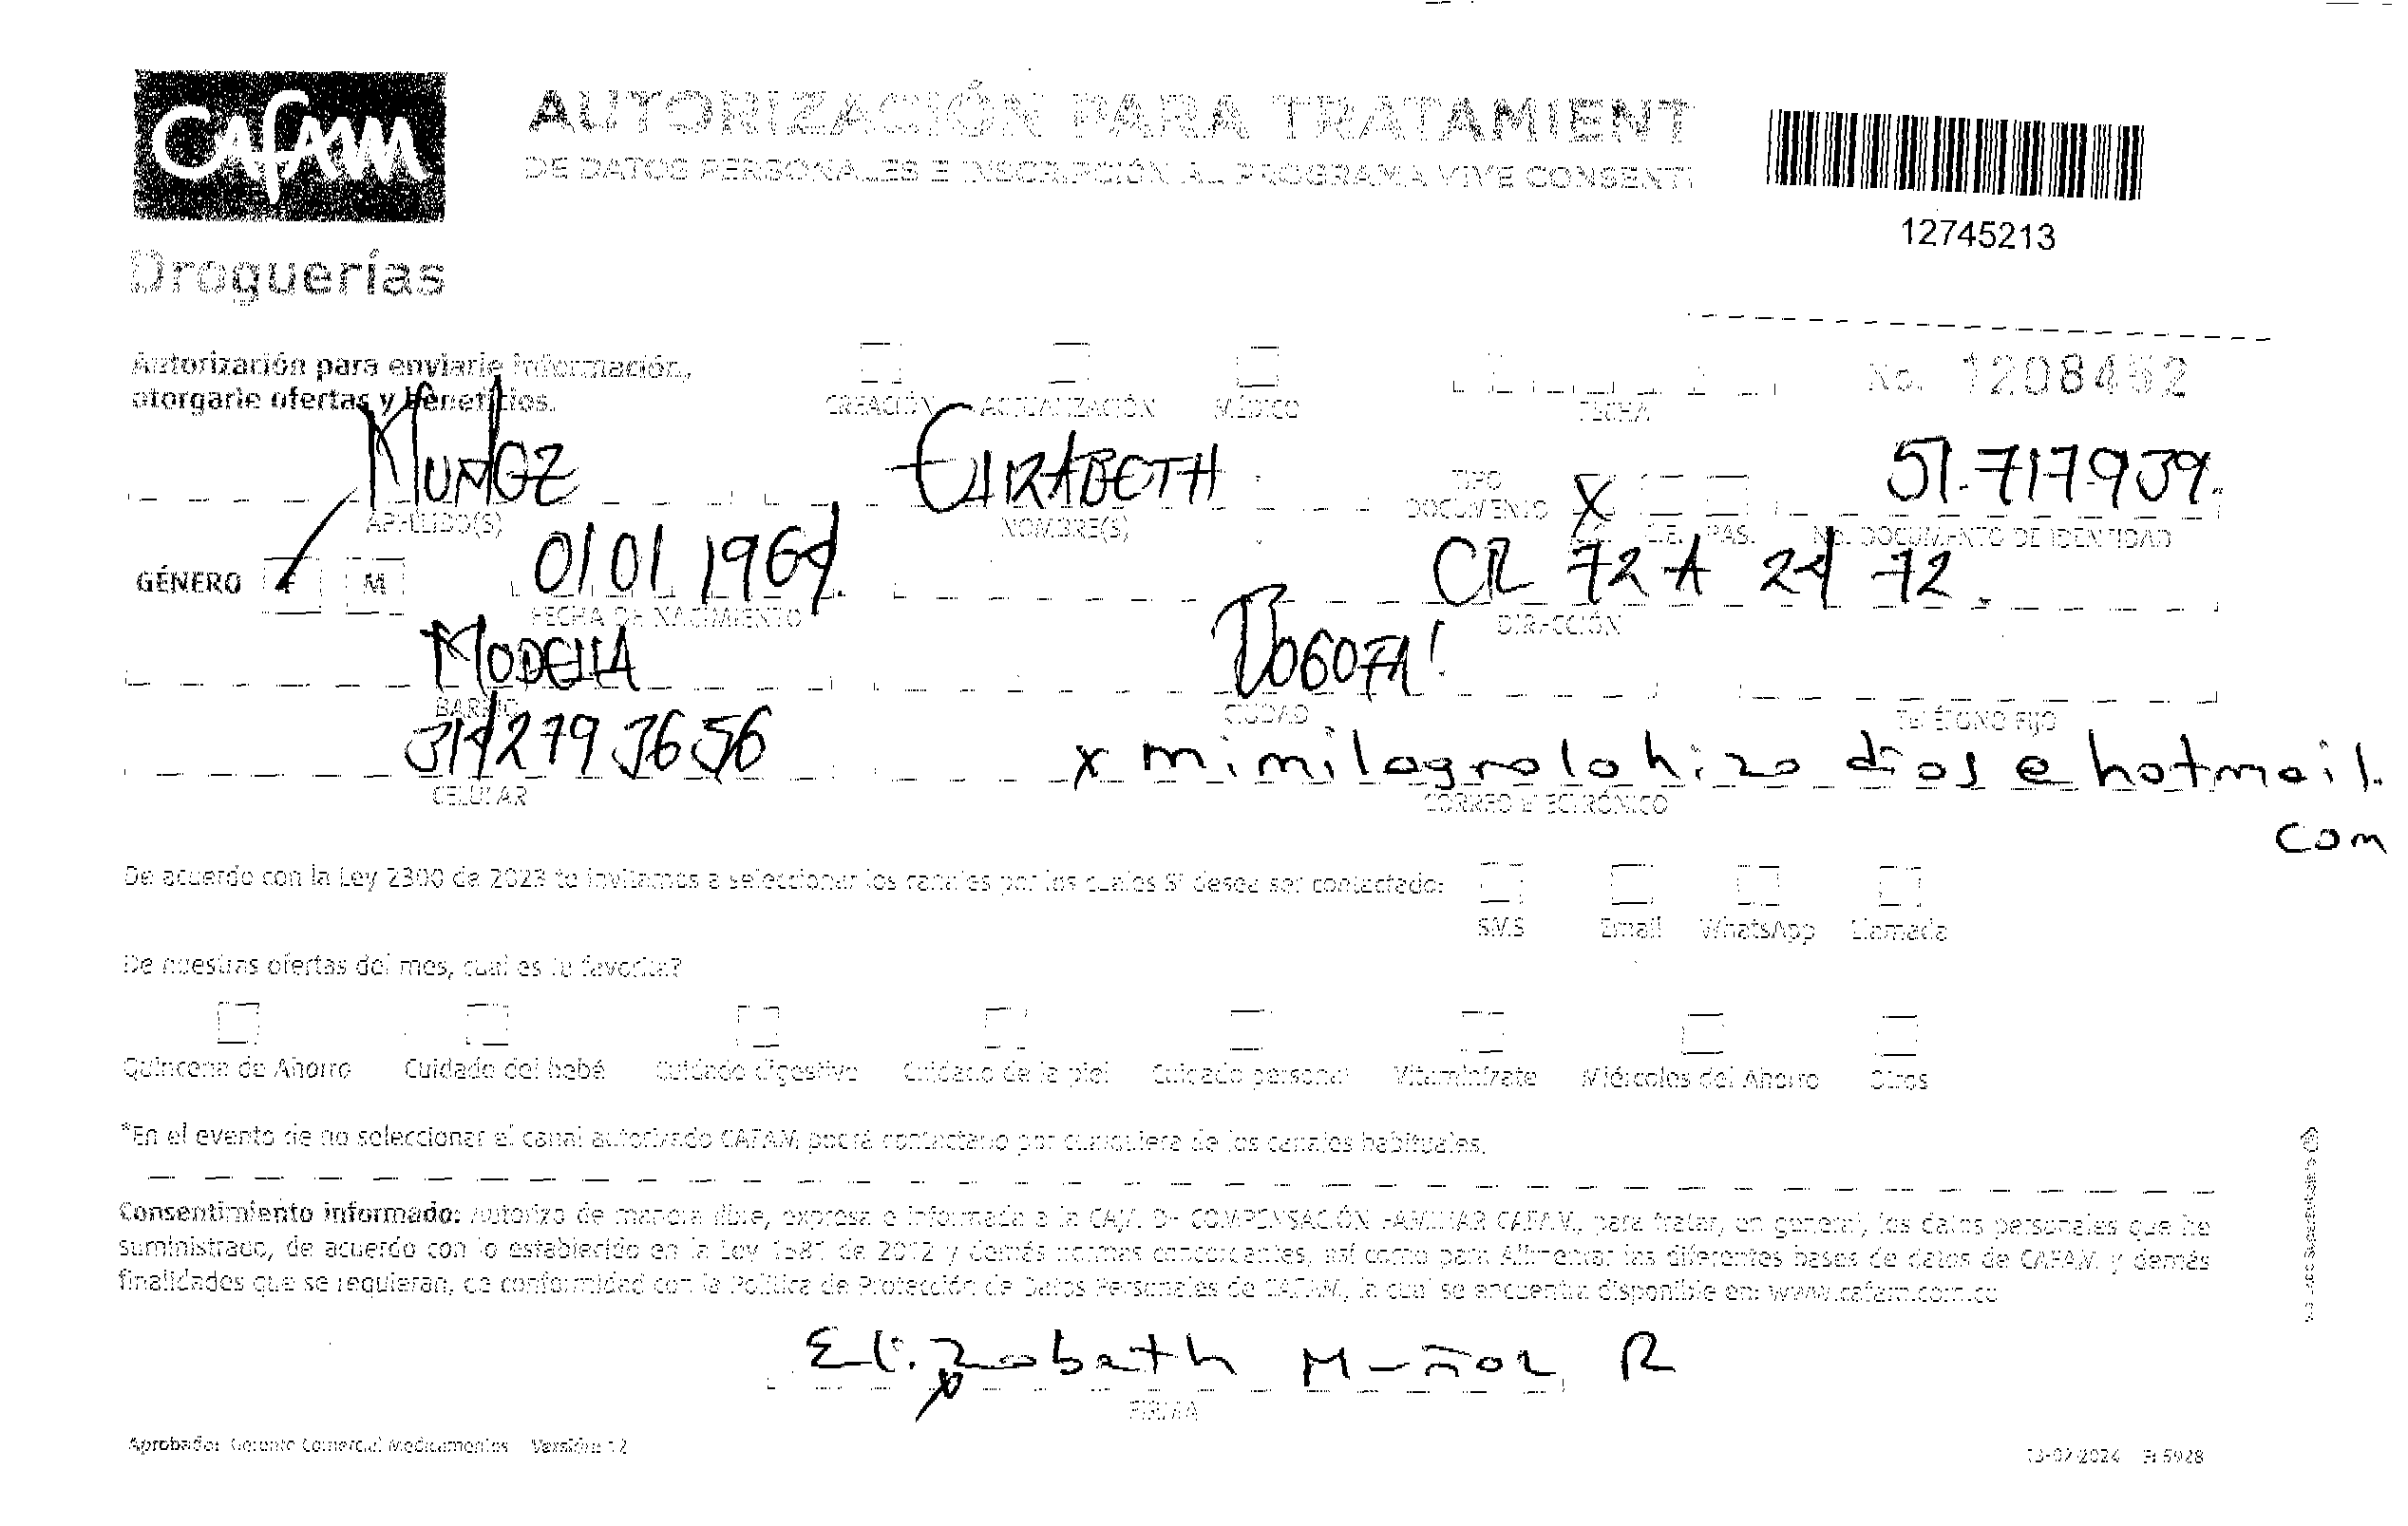 Cafam
Droguerías
AUTORIZACIÓN PARA TRATAMIENT
DE DATOS PERSONALES E INSCRIPCIÓN AL PROGRAMA VIVE CONSENTI
12745213
Autorización para enviarle información,
otorgarle ofertas y beneficios.
CREACIÓN ACTUALIZACIÓN MÉDICO
FECHA
No. 1208452
MUÑOZ ELIZABETH X 51.717.939.
APELLIDO(S) NOMBRE(S) TIPO DOCUMENTO C.C. C.E. PAS. No. DOCUMENTO DE IDENTIDAD
GÉNERO F M 01 01 1964 CR 72 A 24 72.
FECHA DE NACIMIENTO DIRECCIÓN
MODELIA BOGOTA!
BARRIO CIUDAD TELÉFONO FIJO
3142793656 x mimilagrolohizo dios e hotmail.
com
CELULAR CORREO ELECTRÓNICO
De acuerdo con la Ley 2300 de 2023 te invitamos a seleccionar los canales por los cuales SI desea ser contactado:
SMS Email WhatsApp Llamada
De nuestras ofertas del mes, cual es tu favorita?
Quincena de Ahorro Cuidado del bebé Cuidado digestivo Cuidado de la piel Cuidado personal Vitaminízate Miércoles del Ahorro Otros
*En el evento de no seleccionar el canal autorizado CAFAM podrá contactarlo por cualquiera de los canales habituales.
Consentimiento informado: Autorizo de manera libre, expresa e informada a la CAJA DE COMPENSACIÓN FAMILIAR CAFAM, para tratar, en general, los datos personales que he
suministrado, de acuerdo con lo establecido en la Ley 1581 de 2012 y demás normas concordantes, así como para Alimentar las diferentes bases de datos de CAFAM y demás
finalidades que se requieran, de conformidad con la Política de Protección de Datos Personales de CAFAM, la cual se encuentra disponible en: www.cafam.com.co
Elizabeth Muñoz R
FIRMA
Aprobador Gerente Comercial Medicamentos Versión: 12
13-02-2024